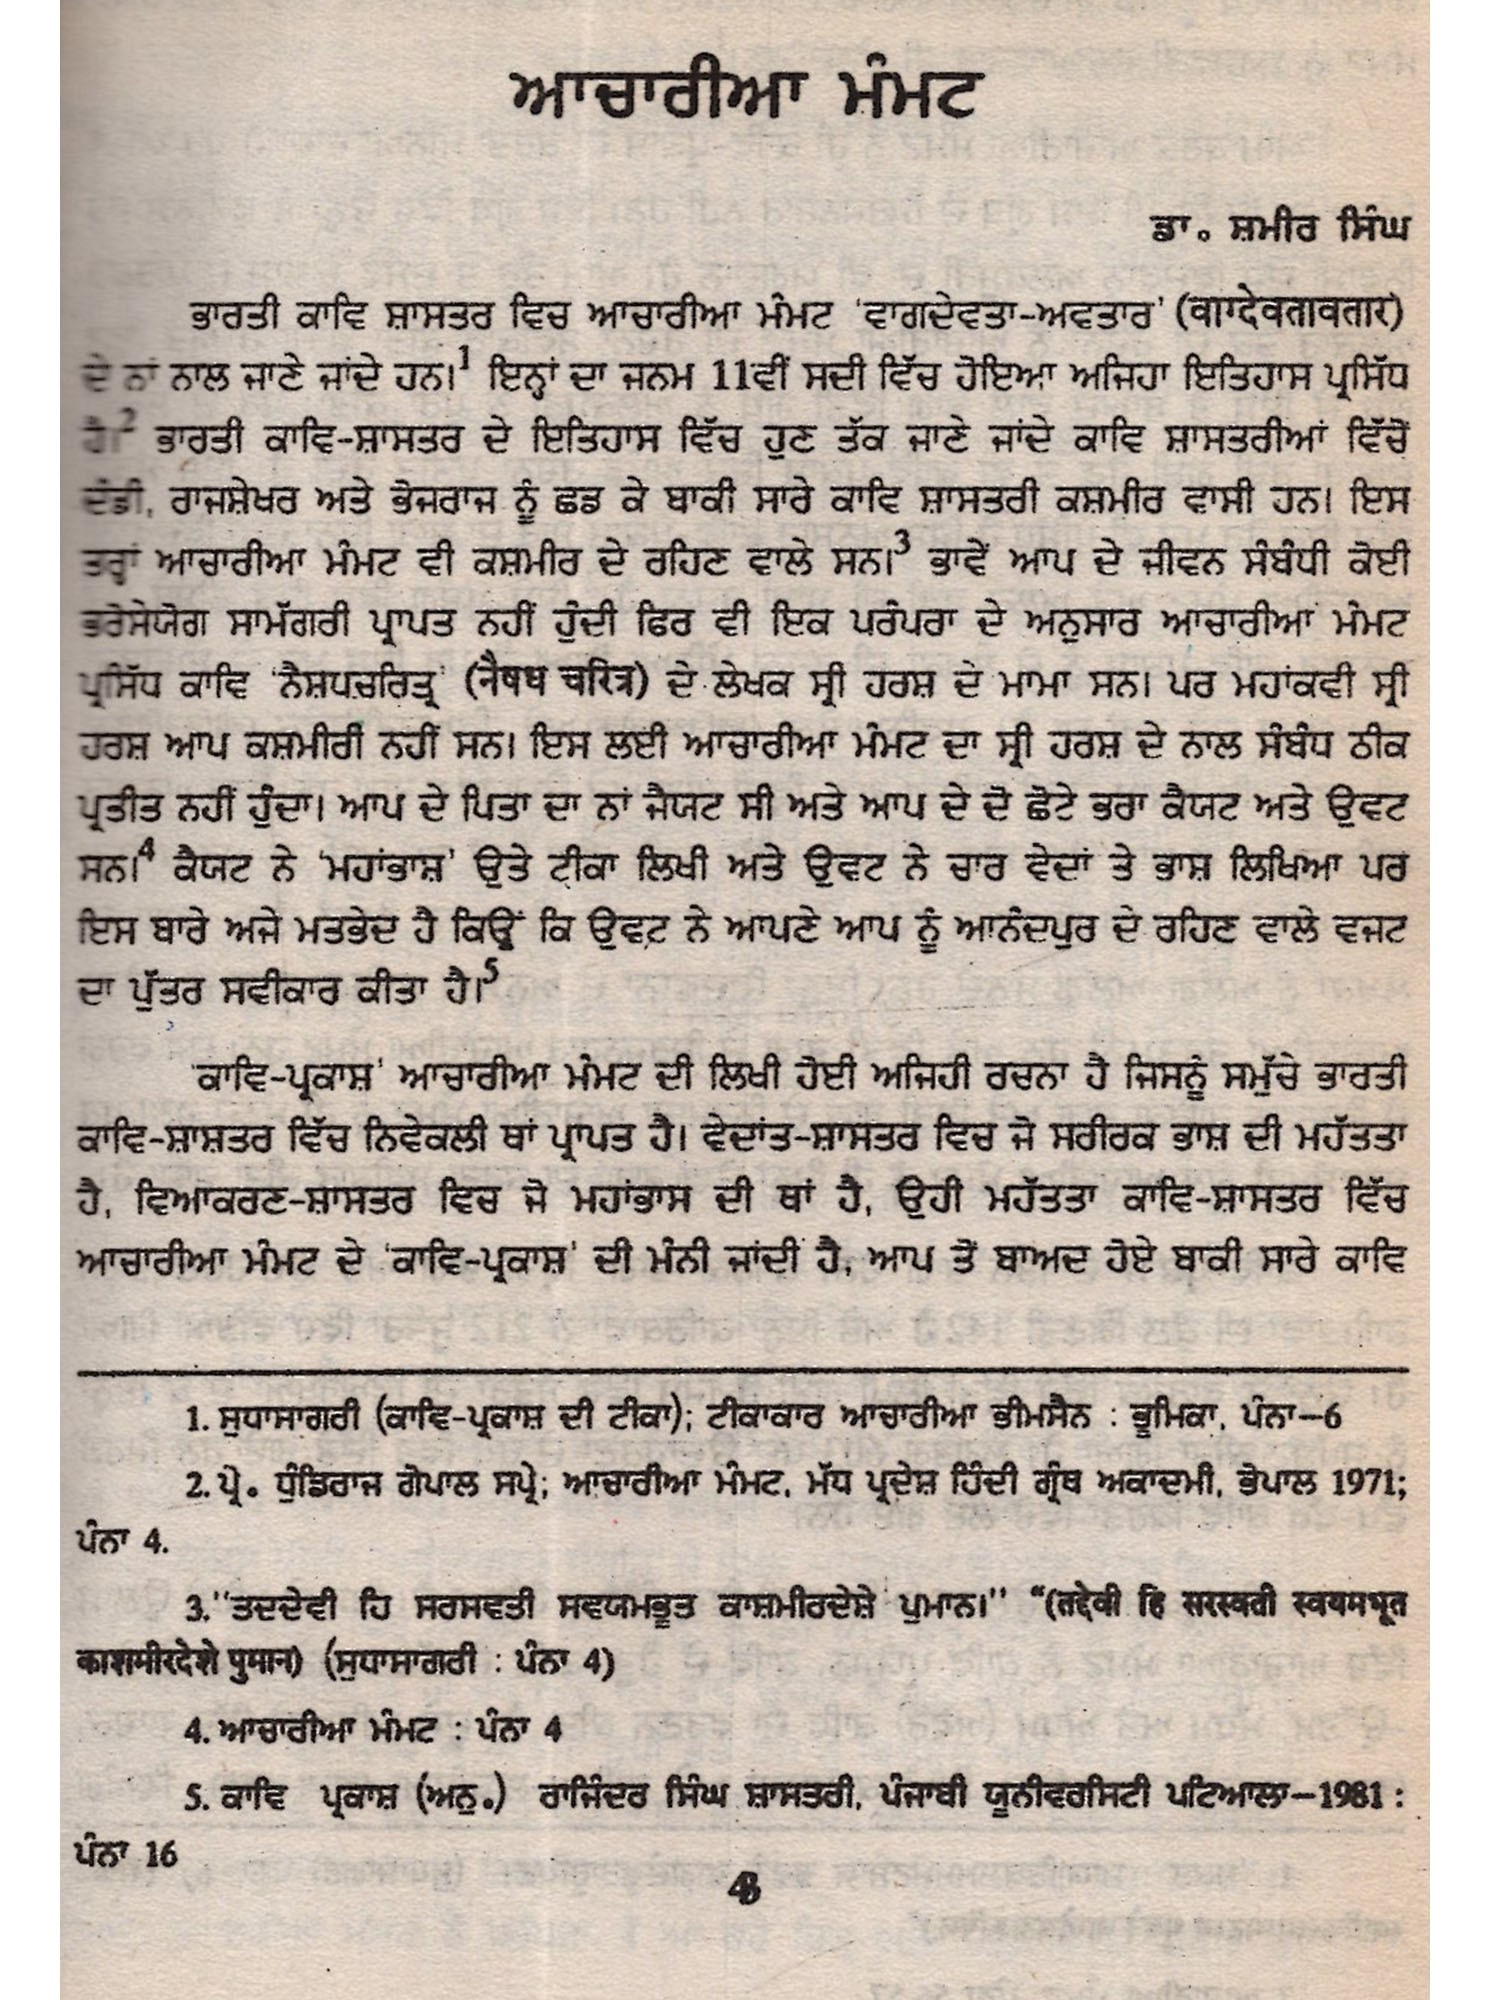 ਆਚਾਰੀਆ ਮੰਮਟ
ਡਾ. ਸ਼ਮੀਰ ਸਿੰਘ
ਭਾਰਤੀ ਕਾਵਿ ਸ਼ਾਸਤਰ ਵਿਚ ਆਚਾਰੀਆ ਮੰਮਟ 'ਵਾਗਦੇਵਤਾ-ਅਵਤਾਰ' (वाग्देवतावतार)
ਦੇ ਨਾਂ ਨਾਲ ਜਾਣੇ ਜਾਂਦੇ ਹਨ।1 ਇਨ੍ਹਾਂ ਦਾ ਜਨਮ 11ਵੀਂ ਸਦੀ ਵਿੱਚ ਹੋਇਆ ਅਜਿਹਾ ਇਤਿਹਾਸ ਪ੍ਰਸਿੱਧ
ਹੈ।2 ਭਾਰਤੀ ਕਾਵਿ-ਸ਼ਾਸਤਰ ਦੇ ਇਤਿਹਾਸ ਵਿੱਚ ਹੁਣ ਤੱਕ ਜਾਣੇ ਜਾਂਦੇ ਕਾਵਿ ਸ਼ਾਸਤਰੀਆਂ ਵਿੱਚੋਂ
ਦੰਡੀ, ਰਾਜਸ਼ੇਖਰ ਅਤੇ ਭੋਜਰਾਜ ਨੂੰ ਛਡ ਕੇ ਬਾਕੀ ਸਾਰੇ ਕਾਵਿ ਸ਼ਾਸਤਰੀ ਕਸ਼ਮੀਰ ਵਾਸੀ ਹਨ। ਇਸ
ਤਰ੍ਹਾਂ ਆਚਾਰੀਆ ਮੰਮਟ ਵੀ ਕਸ਼ਮੀਰ ਦੇ ਰਹਿਣ ਵਾਲੇ ਸਨ।3 ਭਾਵੇਂ ਆਪ ਦੇ ਜੀਵਨ ਸੰਬੰਧੀ ਕੋਈ
ਭਰੋਸੇਯੋਗ ਸਾਮੱਗਰੀ ਪ੍ਰਾਪਤ ਨਹੀਂ ਹੁੰਦੀ ਫਿਰ ਵੀ ਇਕ ਪਰੰਪਰਾ ਦੇ ਅਨੁਸਾਰ ਆਚਾਰੀਆ ਮੰਮਟ
ਪ੍ਰਸਿੱਧ ਕਾਵਿ 'ਨੈਸ਼ਧਚਰਿਤ੍ਰ' (नैषध चरित्र) ਦੇ ਲੇਖਕ ਸ੍ਰੀ ਹਰਸ਼ ਦੇ ਮਾਮਾ ਸਨ। ਪਰ ਮਹਾਂਕਵੀ ਸ੍ਰੀ
ਹਰਸ਼ ਆਪ ਕਸ਼ਮੀਰੀ ਨਹੀਂ ਸਨ। ਇਸ ਲਈ ਆਚਾਰੀਆ ਮੰਮਟ ਦਾ ਸ੍ਰੀ ਹਰਸ਼ ਦੇ ਨਾਲ ਸੰਬੰਧ ਠੀਕ
ਪ੍ਰਤੀਤ ਨਹੀਂ ਹੁੰਦਾ। ਆਪ ਦੇ ਪਿਤਾ ਦਾ ਨਾਂ ਜੈਯਟ ਸੀ ਅਤੇ ਆਪ ਦੇ ਦੋ ਛੋਟੇ ਭਰਾ ਕੈਯਟ ਅਤੇ ਉਵਟ
ਸਨ।4 ਕੈਯਟ ਨੇ 'ਮਹਾਂਭਾਸ਼' ਉਤੇ ਟੀਕਾ ਲਿਖੀ ਅਤੇ ਉਵਟ ਨੇ ਚਾਰ ਵੇਦਾਂ ਤੇ ਭਾਸ਼ ਲਿਖਿਆ ਪਰ
ਇਸ ਬਾਰੇ ਅਜੇ ਮਤਭੇਦ ਹੈ ਕਿਉਂ ਕਿ ਉਵਟ ਨੇ ਆਪਣੇ ਆਪ ਨੂੰ ਆਨੰਦਪੁਰ ਦੇ ਰਹਿਣ ਵਾਲੇ ਵਜਟ
ਦਾ ਪੁੱਤਰ ਸਵੀਕਾਰ ਕੀਤਾ ਹੈ।5
'ਕਾਵਿ-ਪ੍ਰਕਾਸ਼' ਆਚਾਰੀਆ ਮੰਮਟ ਦੀ ਲਿਖੀ ਹੋਈ ਅਜਿਹੀ ਰਚਨਾ ਹੈ ਜਿਸਨੂੰ ਸਮੁੱਚੇ ਭਾਰਤੀ
ਕਾਵਿ-ਸ਼ਾਸ਼ਤਰ ਵਿੱਚ ਨਿਵੇਕਲੀ ਥਾਂ ਪ੍ਰਾਪਤ ਹੈ। ਵੇਦਾਂਤ-ਸ਼ਾਸਤਰ ਵਿਚ ਜੋ ਸਰੀਰਕ ਭਾਸ਼ ਦੀ ਮਹੱਤਤਾ
ਹੈ, ਵਿਆਕਰਣ-ਸ਼ਾਸਤਰ ਵਿਚ ਜੋ ਮਹਾਂਭਾਸ ਦੀ ਥਾਂ ਹੈ, ਉਹੀ ਮਹੱਤਤਾ ਕਾਵਿ-ਸ਼ਾਸਤਰ ਵਿੱਚ
ਆਚਾਰੀਆ ਮੰਮਟ ਦੇ 'ਕਾਵਿ-ਪ੍ਰਕਾਸ਼' ਦੀ ਮੰਨੀ ਜਾਂਦੀ ਹੈ, ਆਪ ਤੋਂ ਬਾਅਦ ਹੋਏ ਬਾਕੀ ਸਾਰੇ ਕਾਵਿ
1. ਸੁਧਾਸਾਗਰੀ (ਕਾਵਿ-ਪ੍ਰਕਾਸ਼ ਦੀ ਟੀਕਾ); ਟੀਕਾਕਾਰ ਆਚਾਰੀਆ ਭੀਮਸੈਨ : ਭੂਮਿਕਾ, ਪੰਨਾ–6
2. ਪ੍ਰੋ. ਧੁੰਡਿਰਾਜ ਗੋਪਾਲ ਸਪ੍ਰੇ; ਆਚਾਰੀਆ ਮੰਮਟ, ਮੱਧ ਪ੍ਰਦੇਸ਼ ਹਿੰਦੀ ਗ੍ਰੰਥ ਅਕਾਦਮੀ, ਭੋਪਾਲ 1971;
ਪੰਨਾ 4.
3."ਤਦਦੇਵੀ ਹਿ ਸਰਸਵਤੀ ਸਵਯਮਭੂਤ ਕਾਸ਼ਮੀਰਦੇਸ਼ੇ ਪੁਮਾਨ।" "(तद्देवी हि सरस्वती स्वयमभूत
काशमीरदेशे पुमान) (ਸੁਧਾਸਾਗਰੀ : ਪੰਨਾ 4)
4. ਆਚਾਰੀਆ ਮੰਮਟ : ਪੰਨਾ 4
5. ਕਾਵਿ ਪ੍ਰਕਾਸ਼ (ਅਨੁ.) ਰਾਜਿੰਦਰ ਸਿੰਘ ਸ਼ਾਸਤਰੀ, ਪੰਜਾਬੀ ਯੂਨੀਵਰਸਿਟੀ ਪਟਿਆਲਾ–1981 :
ਪੰਨਾ 16